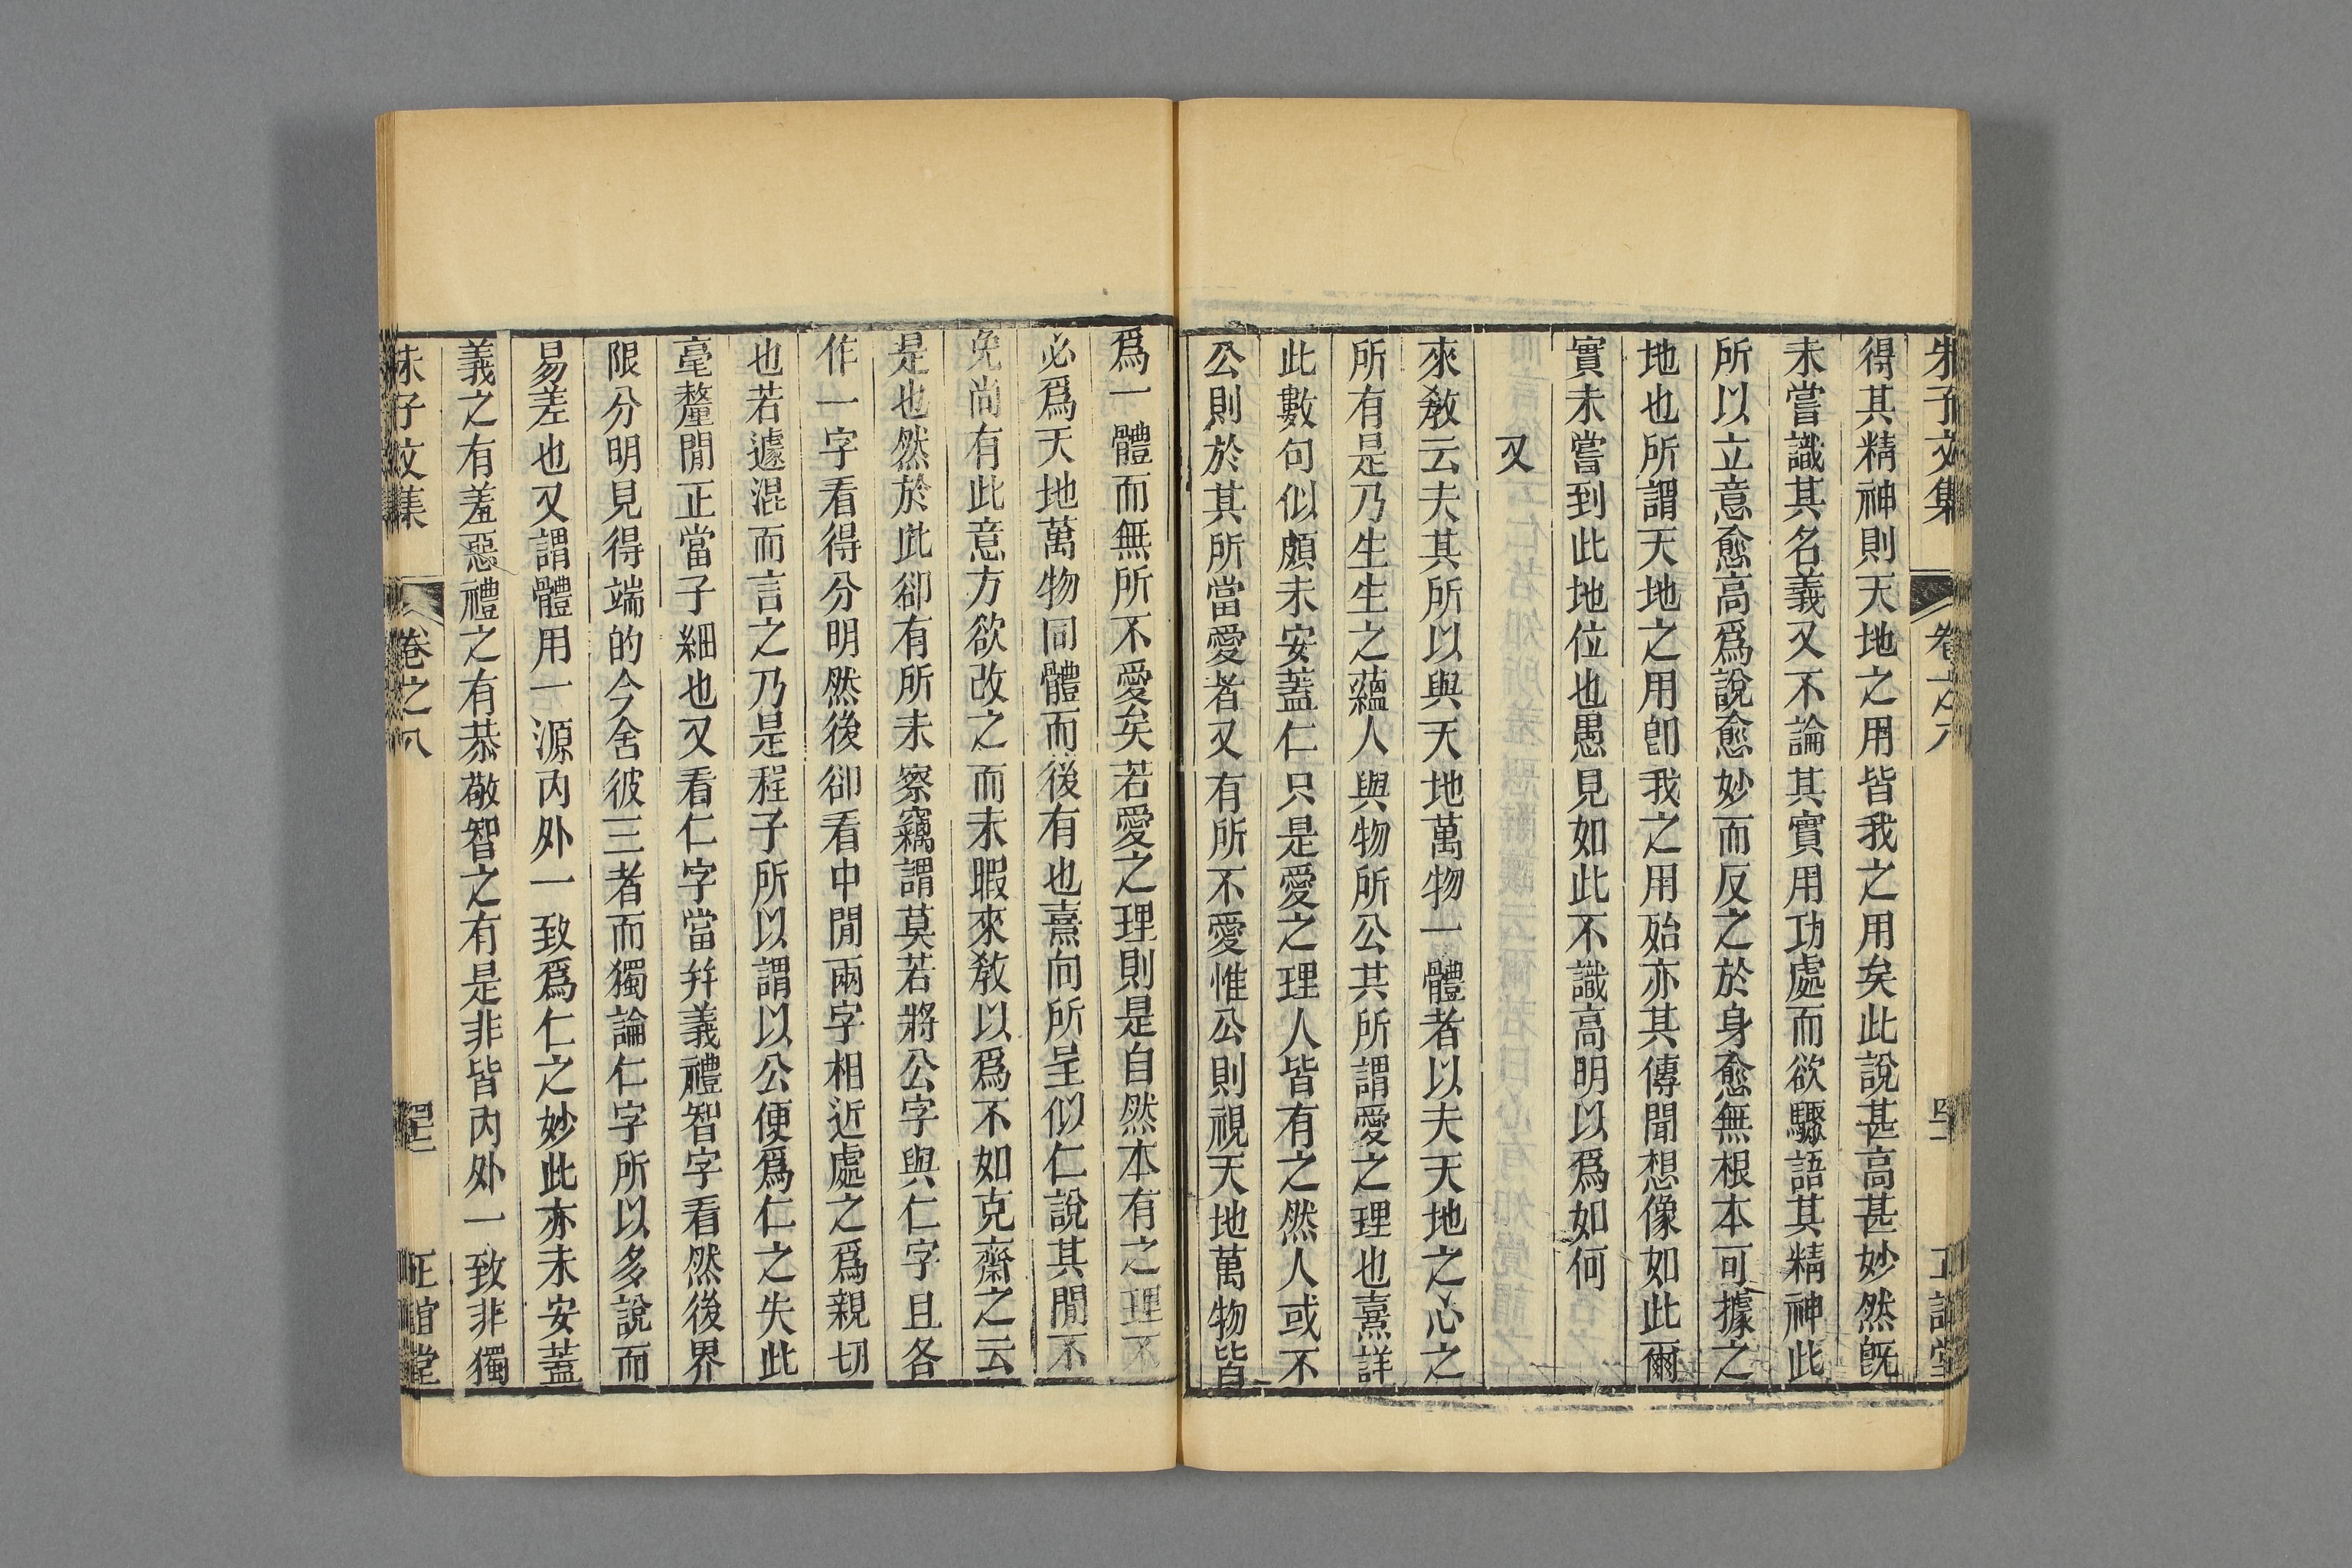 朱子文集 卷之八
得其精神則天地之用皆我之用矣此說甚高甚妙然旣
未嘗識其名義又不論其實用功處而欲驟語其精神此
所以立意愈高爲說愈妙而反之於身愈無根本可據之
地也所謂天地之用卽我之用殆亦其傳聞想像如此爾
實未嘗到此地位也愚見如此不識高明以爲如何
又
來敎云夫其所以與天地萬物一體者以夫天地之心之
所有是乃生生之蘊人與物所公共所謂愛之理也熹詳
此數句似頗未安蓋仁只是愛之理人皆有之然人或不
公則於其所當愛者又有所不愛惟公則視天地萬物皆
爲一體而無所不愛矣若愛之理則是自然本有之理不
必爲天地萬物同體而後有也熹向所呈似仁說其閒不
免尚有此意方欲改之而未暇來敎以爲不如克齋之云
是也然於此卻有所未察竊謂莫若將公字與仁字且各
作一字看得分明然後卻看中閒兩字相近處之爲親切
也若遽混而言之乃是程子所以謂以公便爲仁之失此
毫釐閒正當子細也又看仁字當幷義禮智字看然後界
限分明見得端的今舍彼三者而獨論仁字所以多說而
易差也又謂體用一源內外一致爲仁之妙此亦未安蓋
義之有羞惡禮之有恭敬智之有是非皆內外一致非獨
朱子文集 卷之八 正誼堂